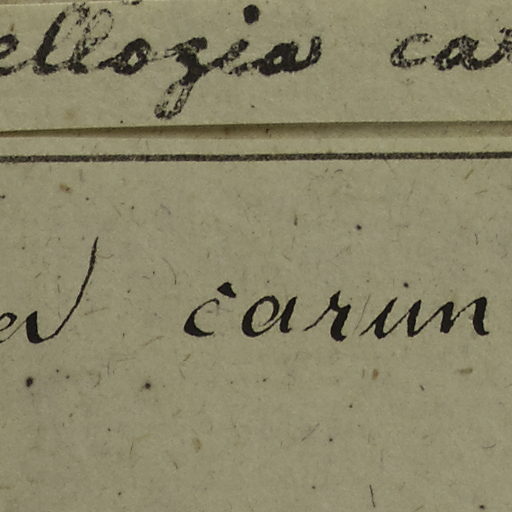 ellozia car
carun